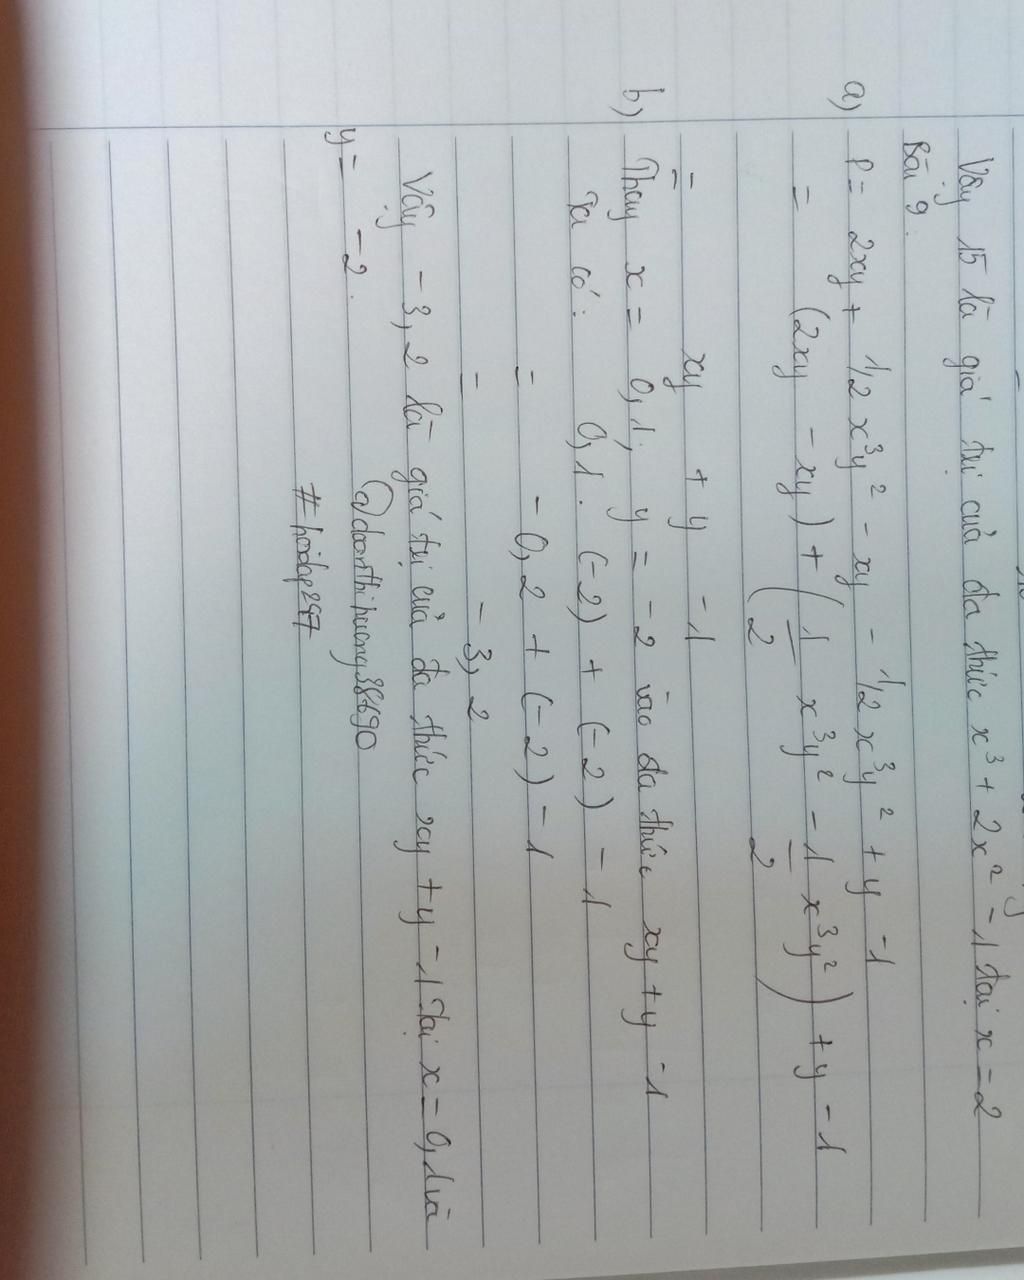 Vậy 15 là giá trị của đa thức x³ + 2x² - 1 tại x = 2
Bài 9:
a) P = 2xy + 1/2 x³y² - xy - 1/2 x³y² + y - 1
= (2xy - xy) + (1/2 x³y² - 1/2 x³y²) + y - 1
= xy + y - 1
b) Thay x = 0,1; y = -2 vào đa thức xy + y - 1
Ta có: 0,1 . (-2) + (-2) - 1
= -0,2 + (-2) - 1
= -3,2
Vậy -3,2 là giá trị của đa thức xy + y - 1 tại x = 0,1 và
y = -2.
@doanthihuong38690
#hoidap247